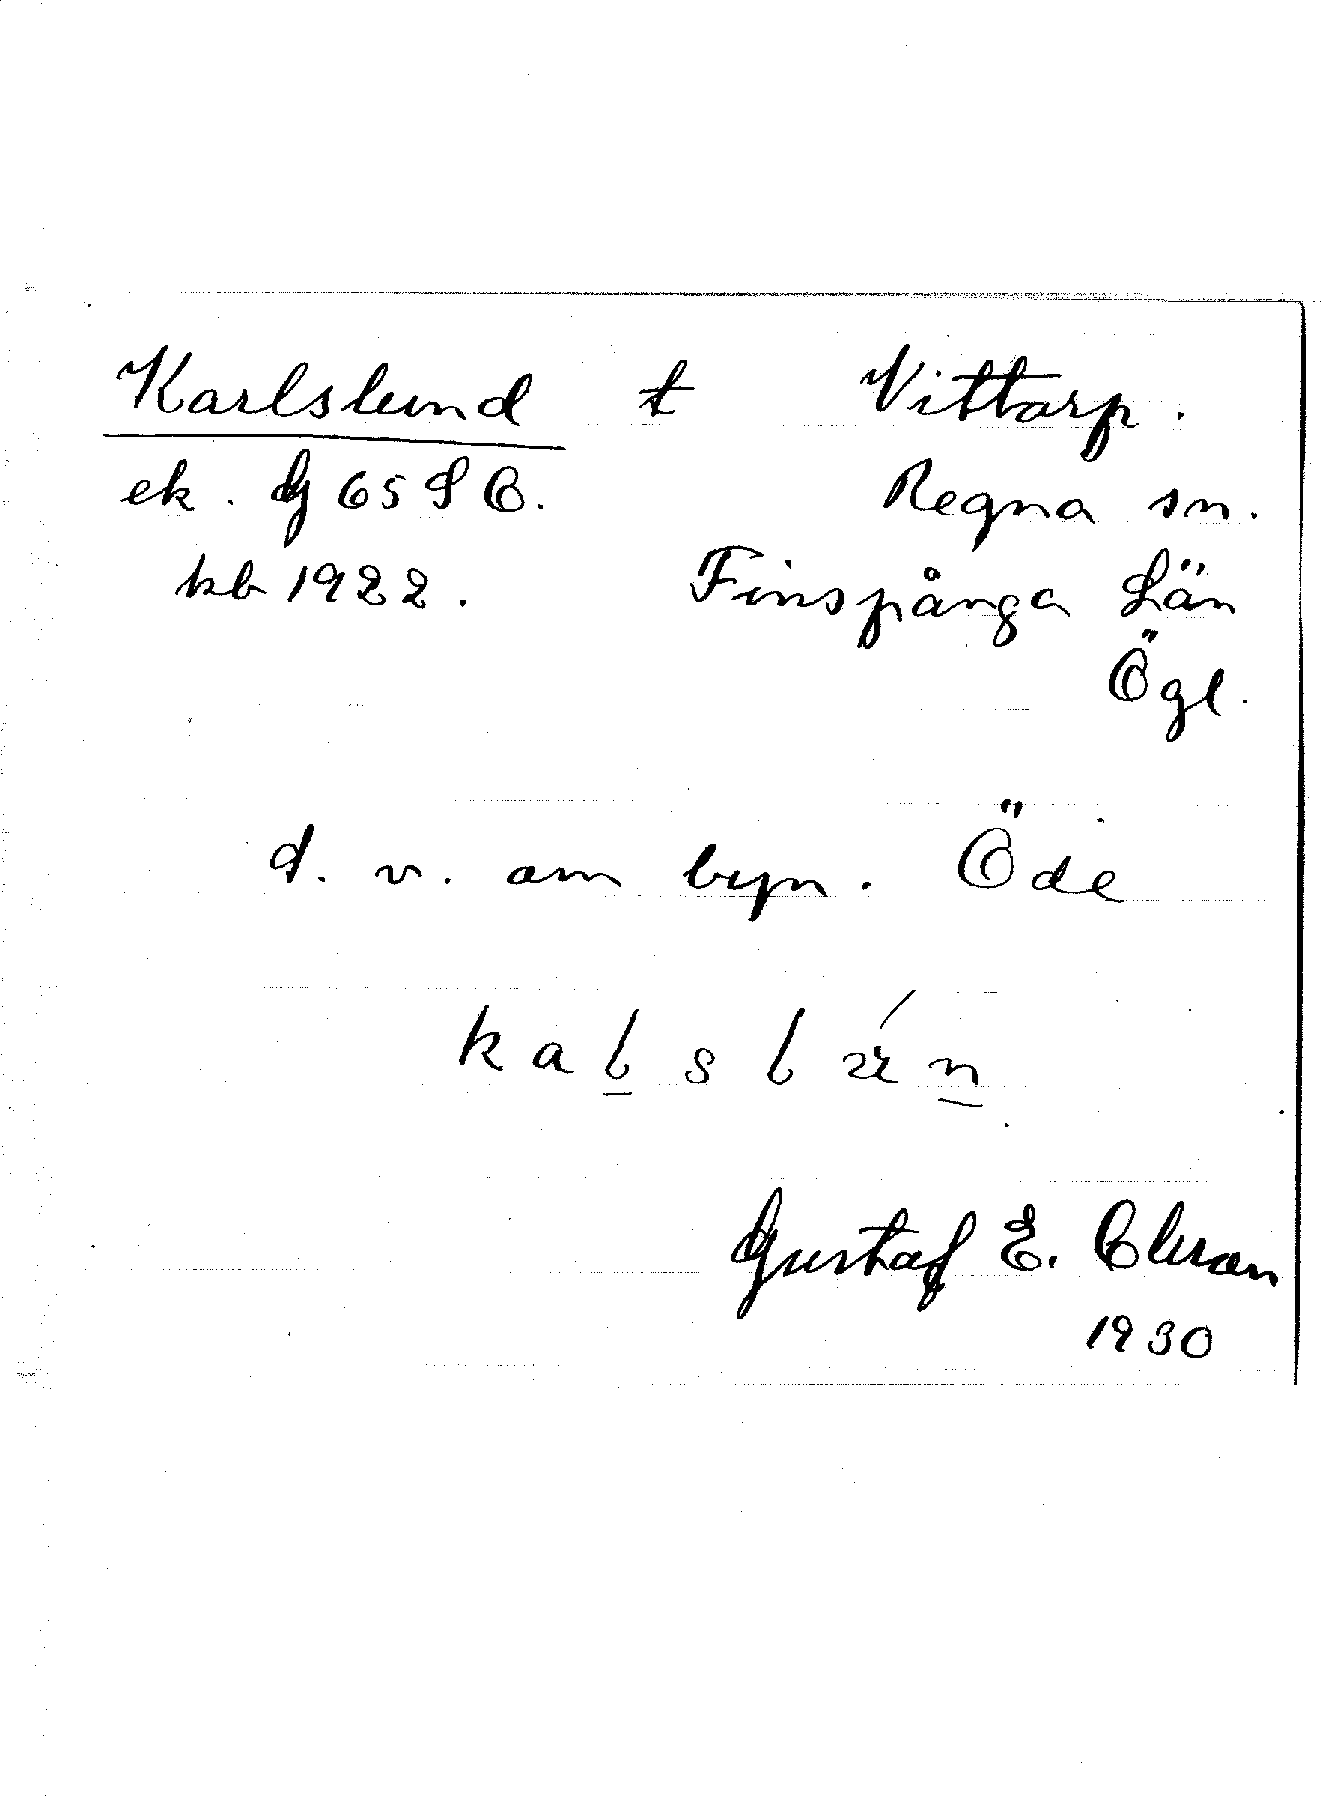 Karlslund t Vittorp.
ek. G 65 S O. Regna sn.
kb 1922. Finspånga Län
Ögl.
d. v. om byn. Öde
Gustaf E. Olsson
1930